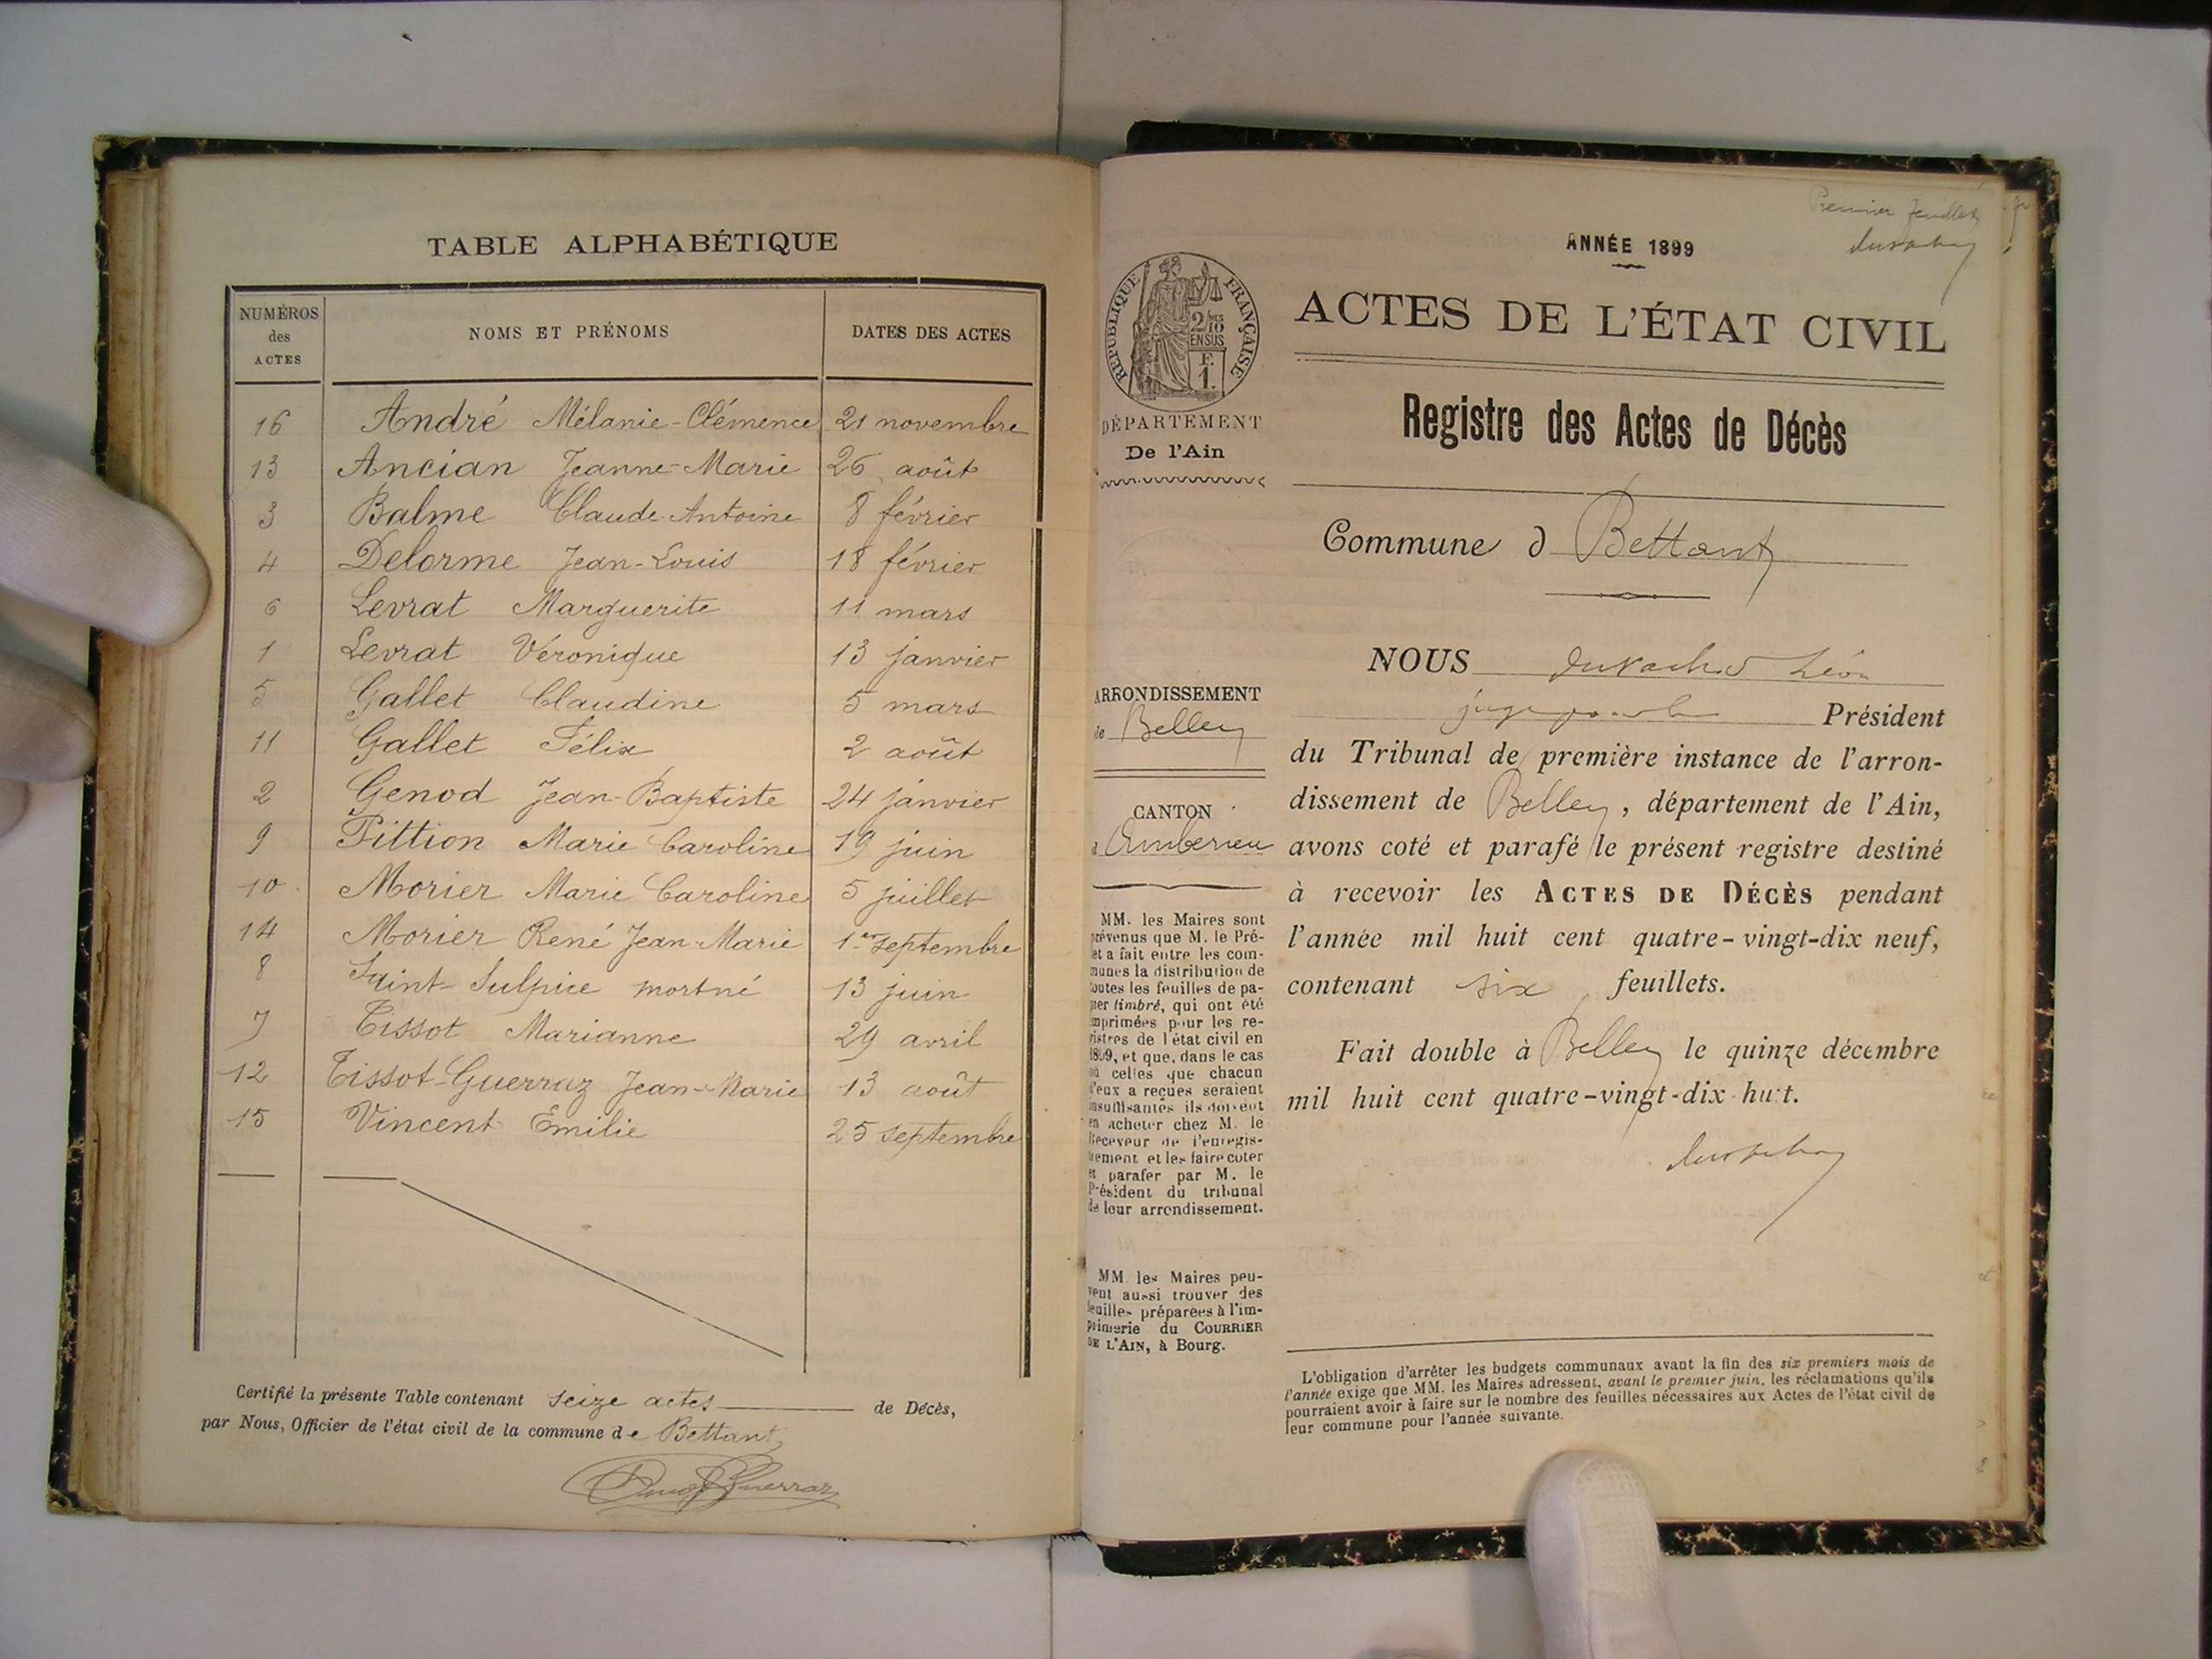 TABLE ALPHABÉTIQUE
NUMÉROS des ACTES NOMS ET PRÉNOMS DATES DES ACTES
16 André Mélanie-Clémence 21 novembre
13 Ancian Jeanne-Marie 26 août
3 Balme Claude-Antoine 8 février
4 Delorme Jean-Louis 18 février
6 Levrat Marguerite 11 mars
1 Levrat Véronique 13 janvier
5 Gallet Claudine 5 mars
11 Gallet Félix 2 août
2 Genod Jean-Baptiste 24 janvier
9 Pittion Marie Caroline 19 juin
10 Morier Marie Caroline 5 juillet
14 Morier René Jean-Marie 1er septembre
8 Saint-Sulpice mortné 13 juin
7 Tissot Marianne 29 avril
12 Tissot-Guerraz Jean-Marie 13 août
15 Vincent Émilie 25 septembre
Certifié la présente Table contenant seize actes de Décès,
par Nous, Officier de l'état civil de la commune de Bettant
Premier feuillet
ANNÉE 1899
RÉPUBLIQUE FRANÇAISE
2/10 MES
EN SUS
F.
1.
ACTES DE L'ÉTAT CIVIL
DÉPARTEMENT
De l'Ain
Registre des Actes de Décès
Commune d Bettant
ARRONDISSEMENT
de Belley
CANTON
d Amberieu
MM. les Maires sont
prévenus que M. le Pré-
et a fait entre les com-
munes la distribution de
toutes les feuilles de pa-
pier timbré, qui ont été
imprimées pour les re-
gistres de l'état civil en
1899, et que, dans le cas
où celles que chacun
d'eux a reçues seraient
insuffisantes ils doivent
en acheter chez M. le
Receveur de l'enregis-
trement et les faire coter
et parafer par M. le
Président du tribunal
de leur arrondissement.
MM. les Maires peu-
vent aussi trouver des
feuilles préparées à l'im-
primerie du COURRIER
DE L'AIN, à Bourg.
NOUS Léon
juge pour le Président
du Tribunal de première instance de l'arron-
dissement de Belley, département de l'Ain,
avons coté et parafé le présent registre destiné
à recevoir les ACTES DE DÉCÈS pendant
l'année mil huit cent quatre-vingt-dix neuf,
contenant six feuillets.
Fait double à Belley le quinze décembre
mil huit cent quatre-vingt-dix-huit.
L'obligation d'arrêter les budgets communaux avant la fin des six premiers mois de
l'année exige que MM. les Maires adressent, avant le premier juin, les réclamations qu'ils
pourraient avoir à faire sur le nombre des feuilles nécessaires aux Actes de l'état civil de
leur commune pour l'année suivante.